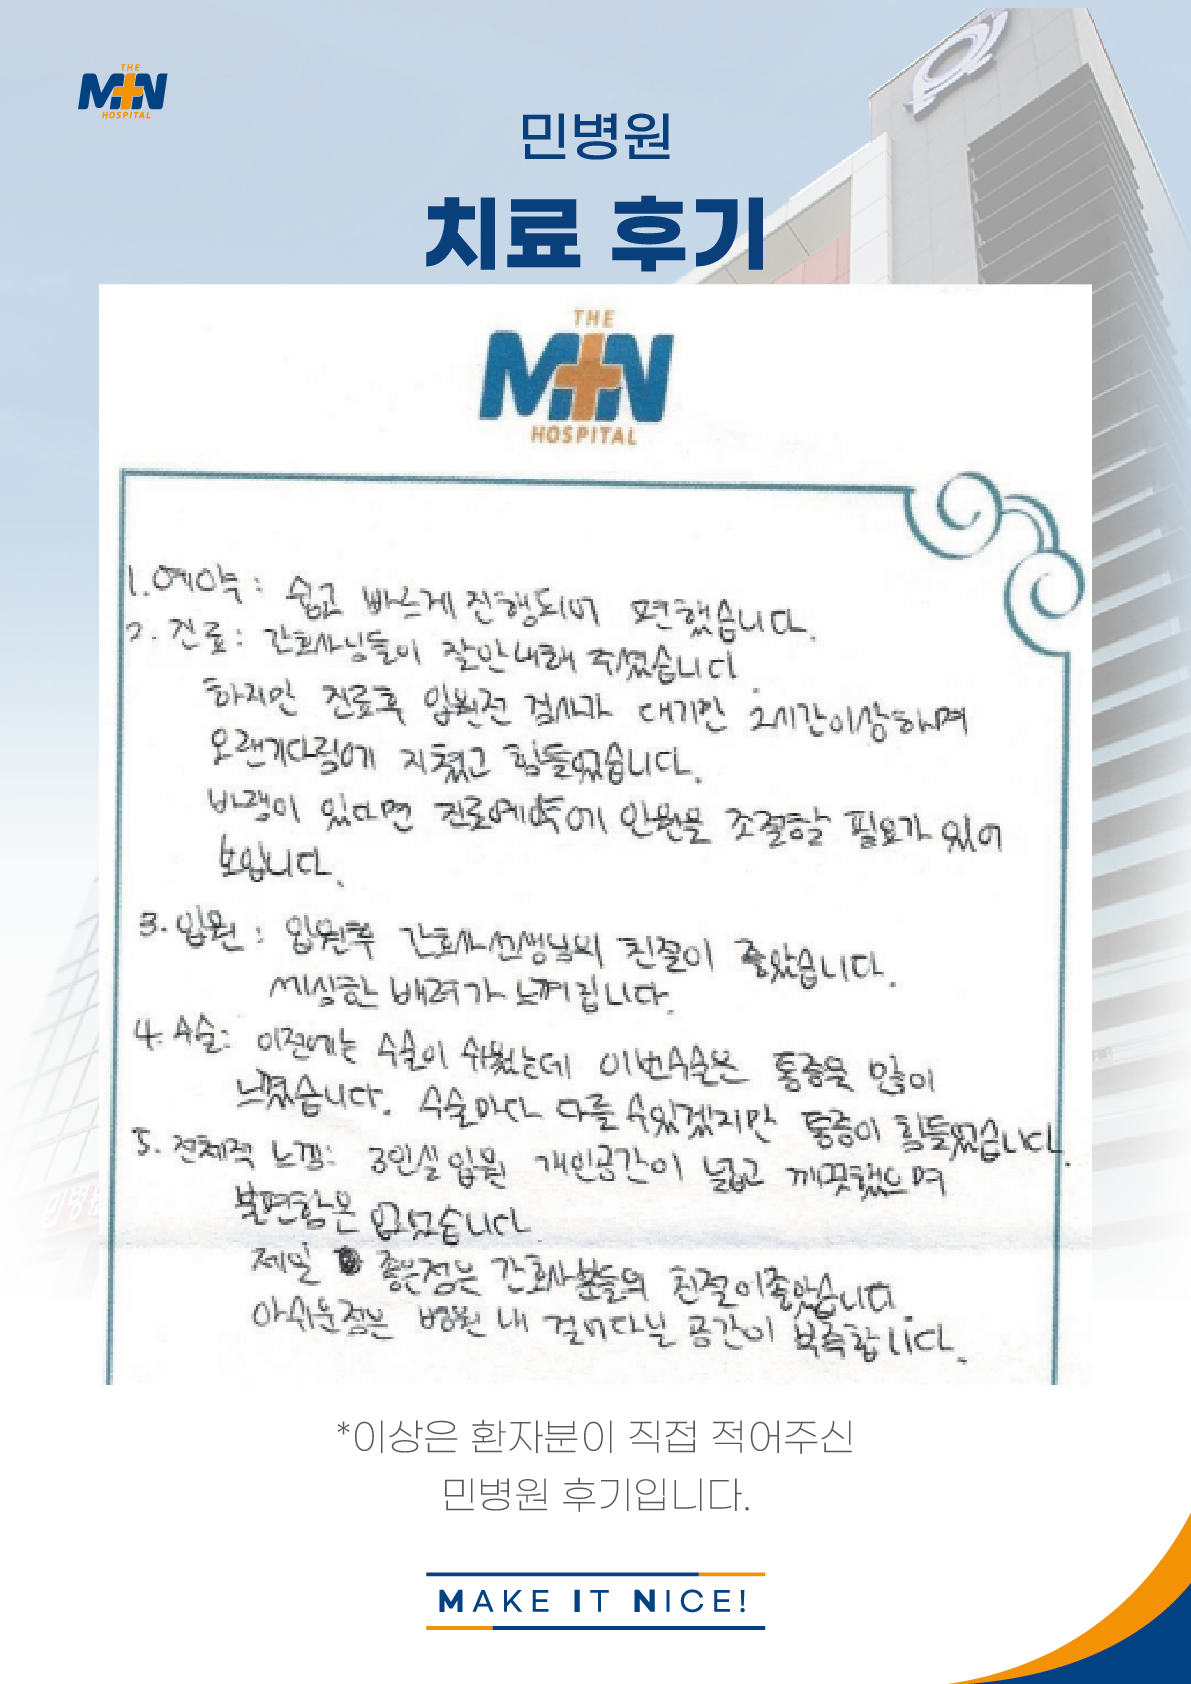 THE
MIN
HOSPITAL
민병원
치료 후기
THE
MIN
HOSPITAL
1. 예약 : 쉽고 빠르게 진행되며 편했습니다.
2. 진료 : 간호사님들이 잘안내해 주셨습니다.
하지만 진료후 입원전 검사가 대기만 2시간이상하며
오랜기다림에 지쳤고 힘들었습니다.
바램이 있다면 진료예약에 인원을 조절할 필요가 있어
보입니다.
3. 입원 : 입원후 간호사선생님의 친절이 좋았습니다.
세심한 배려가 느껴집니다.
4. 수술 : 이전에는 수술이 쉬웠는데 이번수술은 통증을 많이
느꼈습니다. 수술마다 다를 수있겠지만 통증이 힘들었습니다.
5. 전체적 느낌 : 3인실 입원 개인공간이 넓고 깨끗했으며
불편함은 없었습니다
제일 좋은점은 간호사분들의 친절이좋았습니다.
아쉬운점은 병원 내 걸어다닐 공간이 부족합니다.
*이상은 환자분이 직접 적어주신
민병원 후기입니다.
MAKE IT NICE!